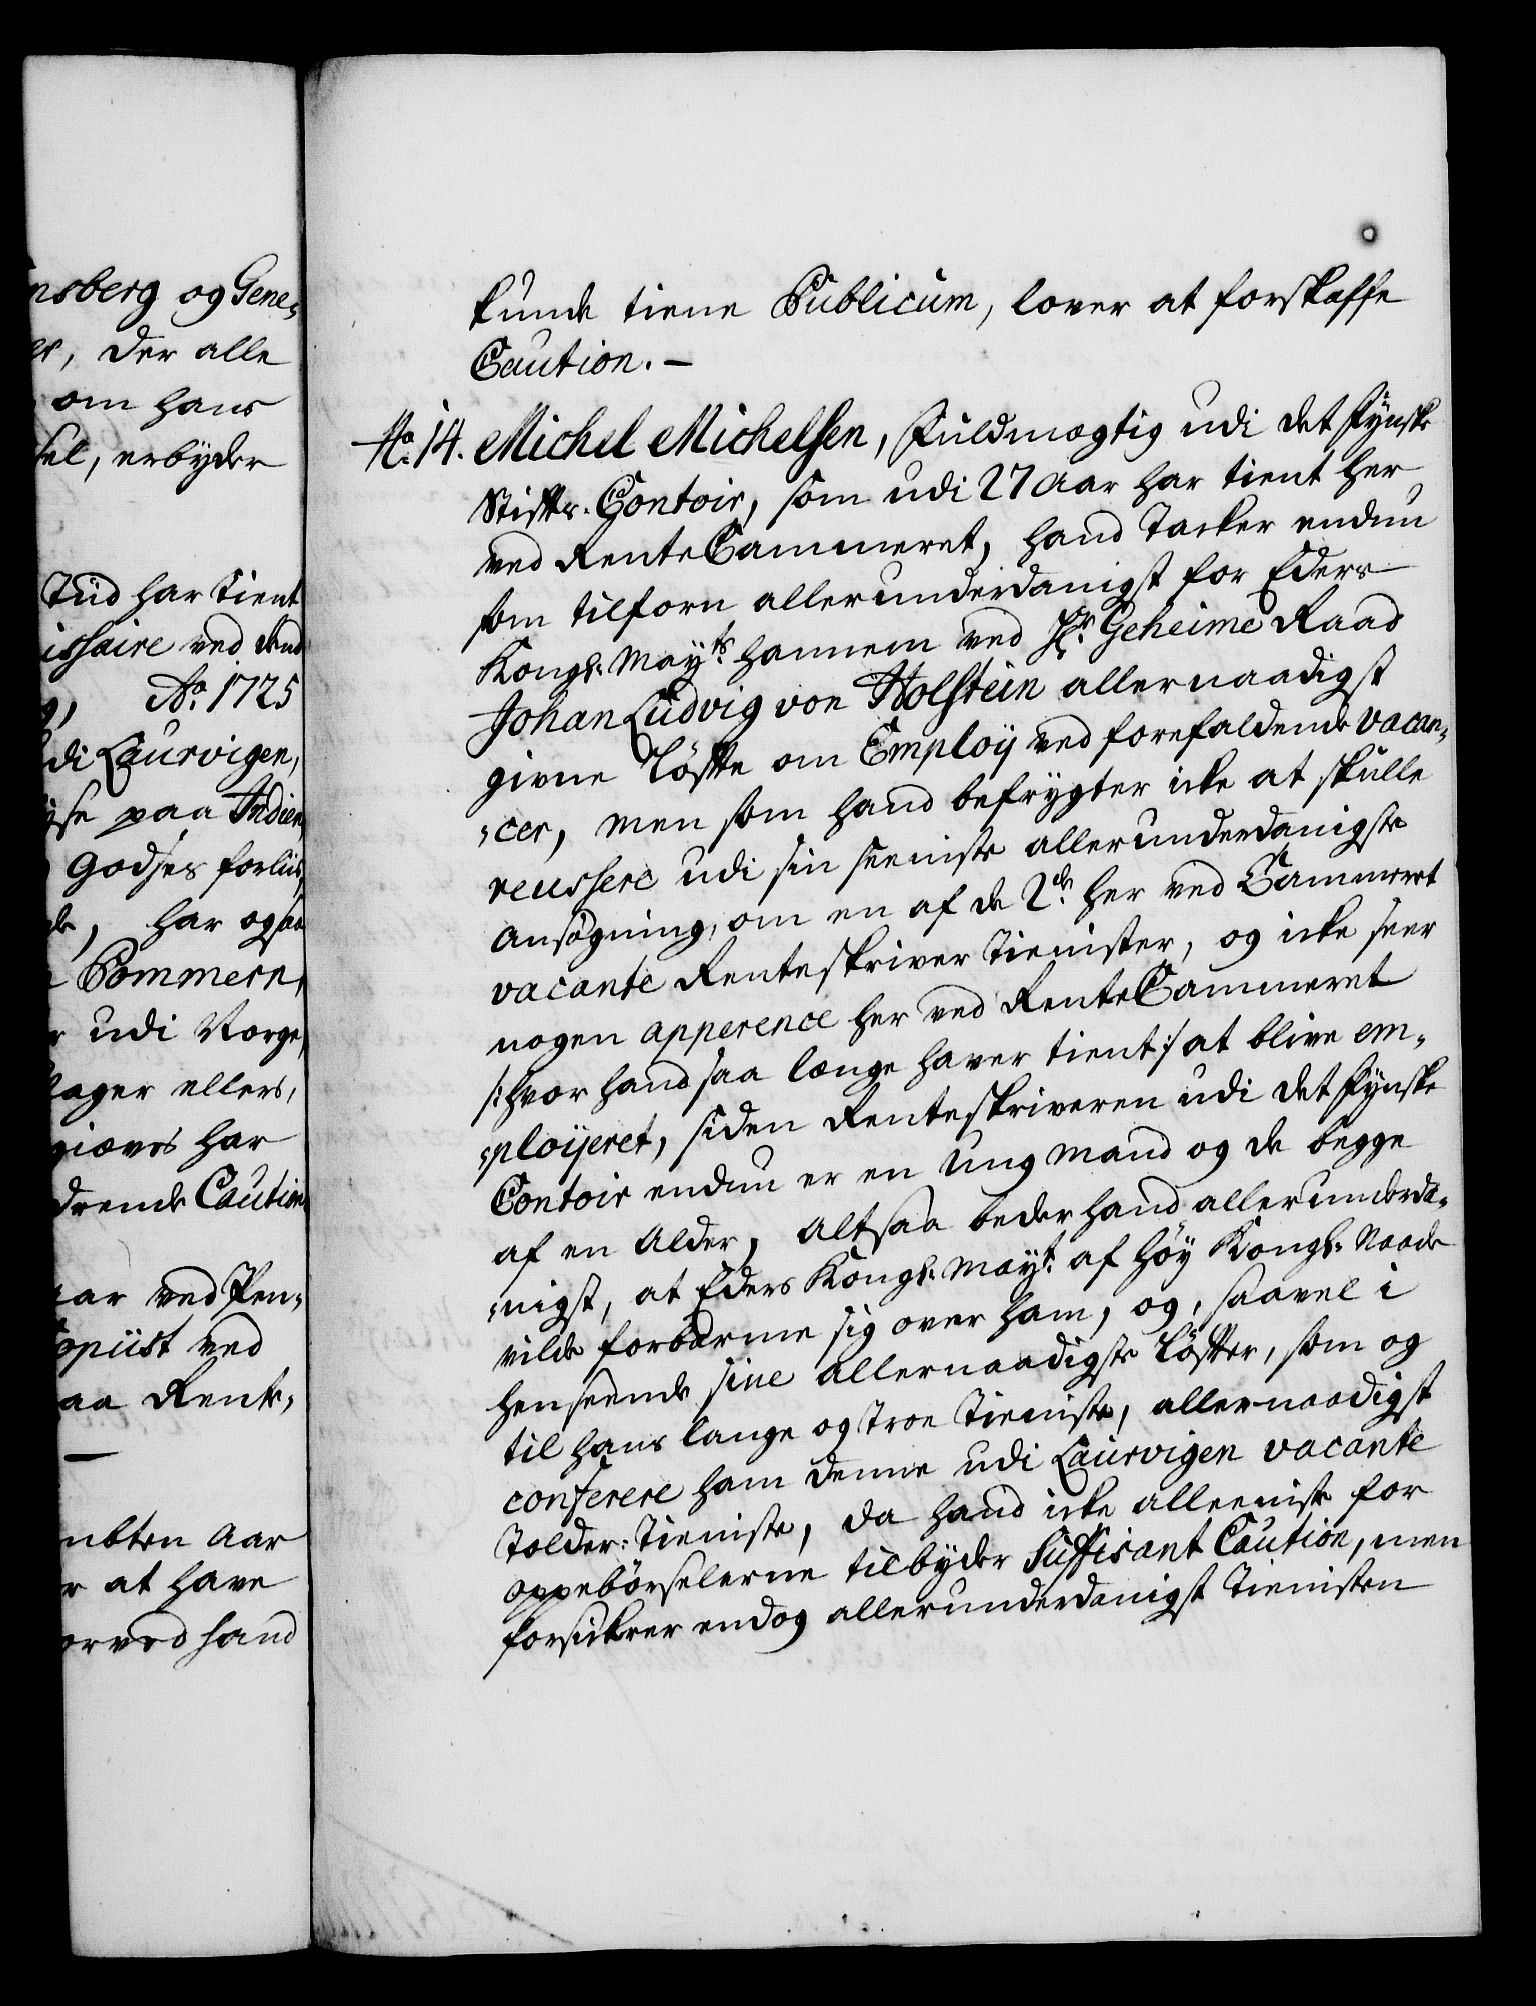 nsberg og Gene-
er, der alle
om hans
sel, erbyder
Tiid har tient
issaire ved dend
Ao. 1725
di Laurvigen,
yse paa Indien
Godses forliis,
de, har ogsaa
Pommern,
r udi Norge,
tager ellers,
giæves har
drende Caution
aar ved Pen-
opiist ved
aa Rente-
nbten Aar
r at have
orved hand
kunde tiene Publicum, lover at forskaffe
Caution. -
No. 14. Michel Michelsen, Fuldmægtig udi det Fynske
Stifts-Contoir, som udi 27 Aar har tient her
ved Rente Cammeret, hand Tacker endnu
som tilforn allerunderdanigst for Eders
Kongl: Mayts. hannem ved Hr. Geheime Raad
Johan Ludvig von Holstein allernaadigst
givne Løfte om Employ ved forefaldende vacan-
-cer, men som hand befrygter icke at skulle
reussere udi sin seeniste allerunderdanigste
Ansøgning, om en af de 2de. her ved Cammeret
vacante Renteskriver Tienister, og icke seer
nogen apperence her ved Rente Cammeret
/: hvor hand saa længe haver tient :/ at blive em-
-ployeret, siden Renteskriveren udi det Fynske
Contoir endnu er en Ung Mand og de begge
af en Alder, altsaa beder hand allerunderda-
-nigst, at Eders Kongl: Mayt. af høy Kongl: Naade
vilde forbarme sig over ham, og, saavel i
henseende sine allernaadigste Løfter, som og
til hans lange og troe Tieniste, allernaadigst
conferere ham denne udi Laurvigen vacante
Tolder: Tieniste, da hand icke alleeniste for
oppebørselerne tilbyder Suffisant Caution, men
forsikrer endog allerunderdanigst Tienisten